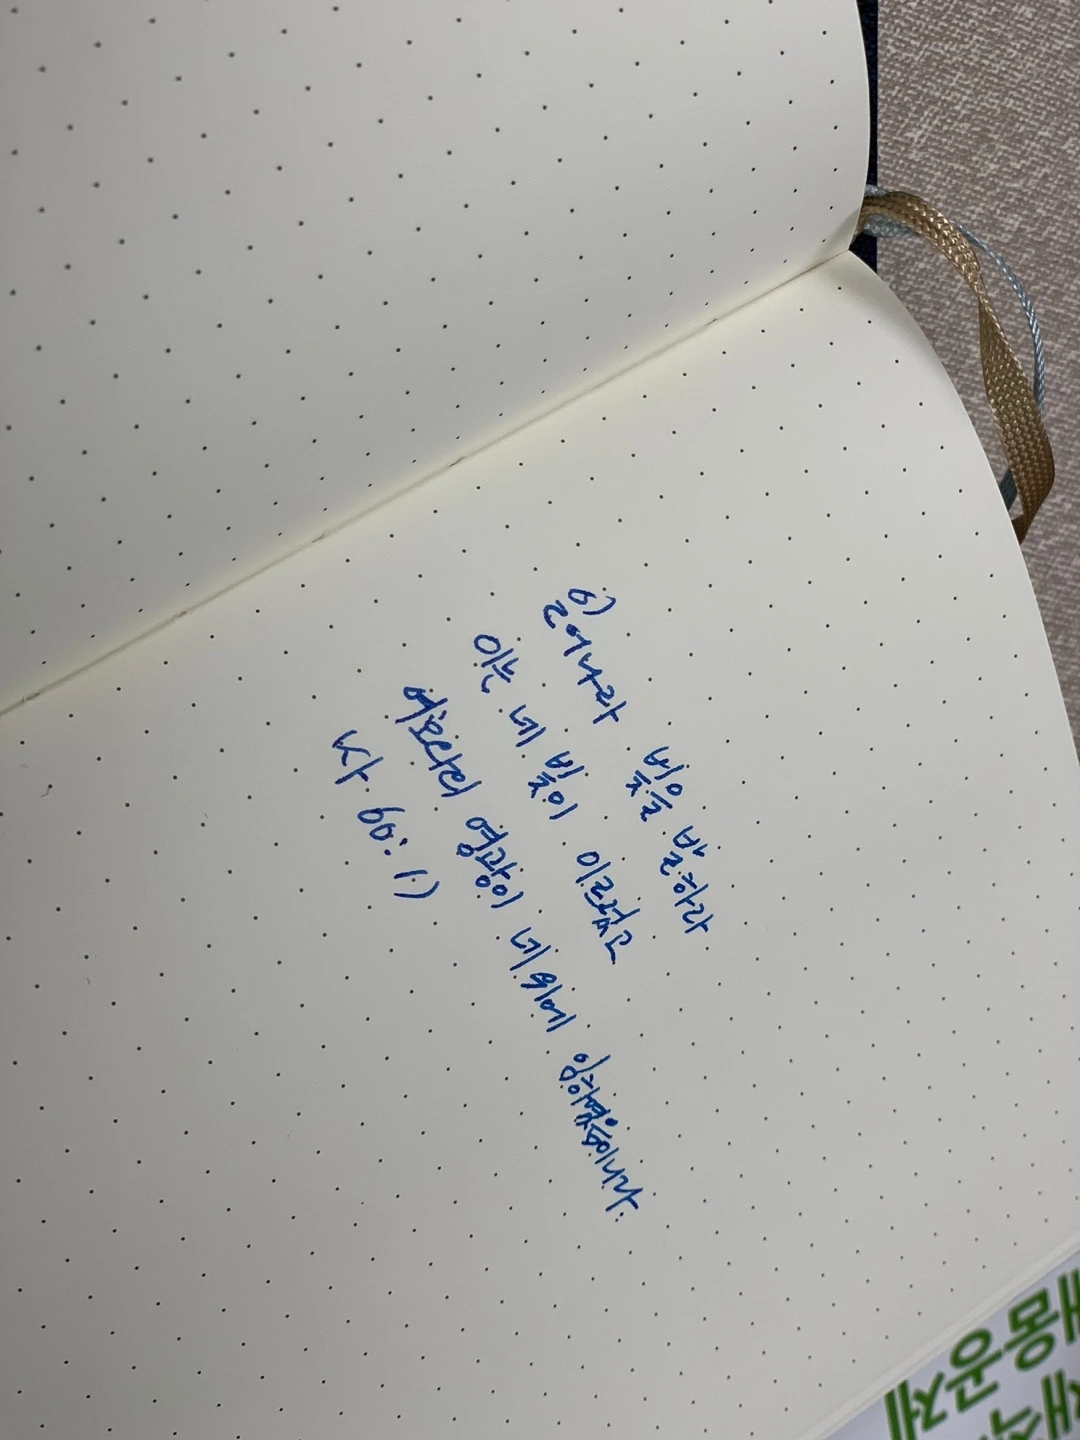 일어나라 빛을 발하라
이는 네 빛이 이르렀고
여호와의 영광이 네 위에 임하였음이니라.
사 60:1)